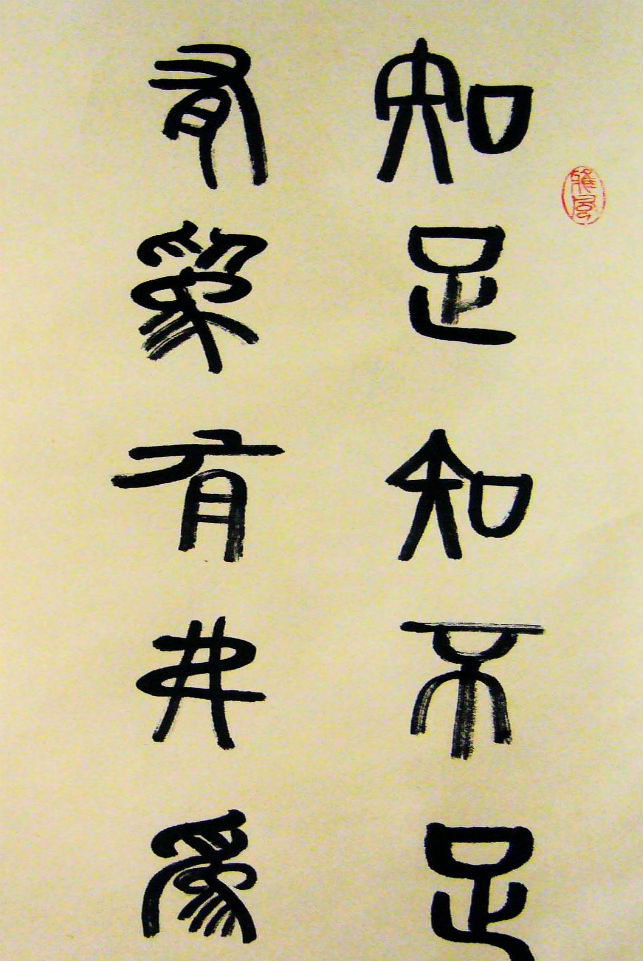 知足知不足
有為有弗為
雅風